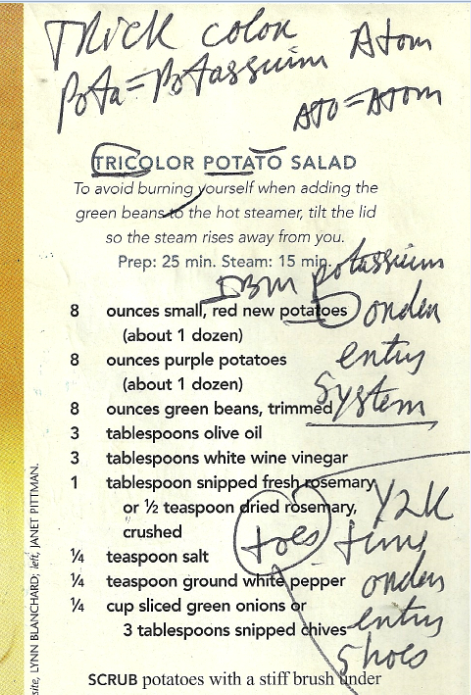 Trick color Atom
Pota=Potassium
ATO=Atom
TRICOLOR POTATO SALAD
To avoid burning yourself when adding the
green beans to the hot steamer, tilt the lid
so the steam rises away from you.
Prep: 25 min. Steam: 15 min.
IBM potassium
8 ounces small, red new potatoes
(about 1 dozen)
order
8 ounces purple potatoes
(about 1 dozen)
entry
8 ounces green beans, trimmed
System
3 tablespoons olive oil
3 tablespoons white wine vinegar
1 tablespoon snipped fresh rosemary
or ½ teaspoon dried rosemary,
crushed
Y2K
toes time
¼ teaspoon salt
¼ teaspoon ground white pepper
order
¼ cup sliced green onions or
3 tablespoons snipped chives
entry
Shoes
SCRUB potatoes with a stiff brush under
site, LYNN BLANCHARD; left, JANET PITTMAN.